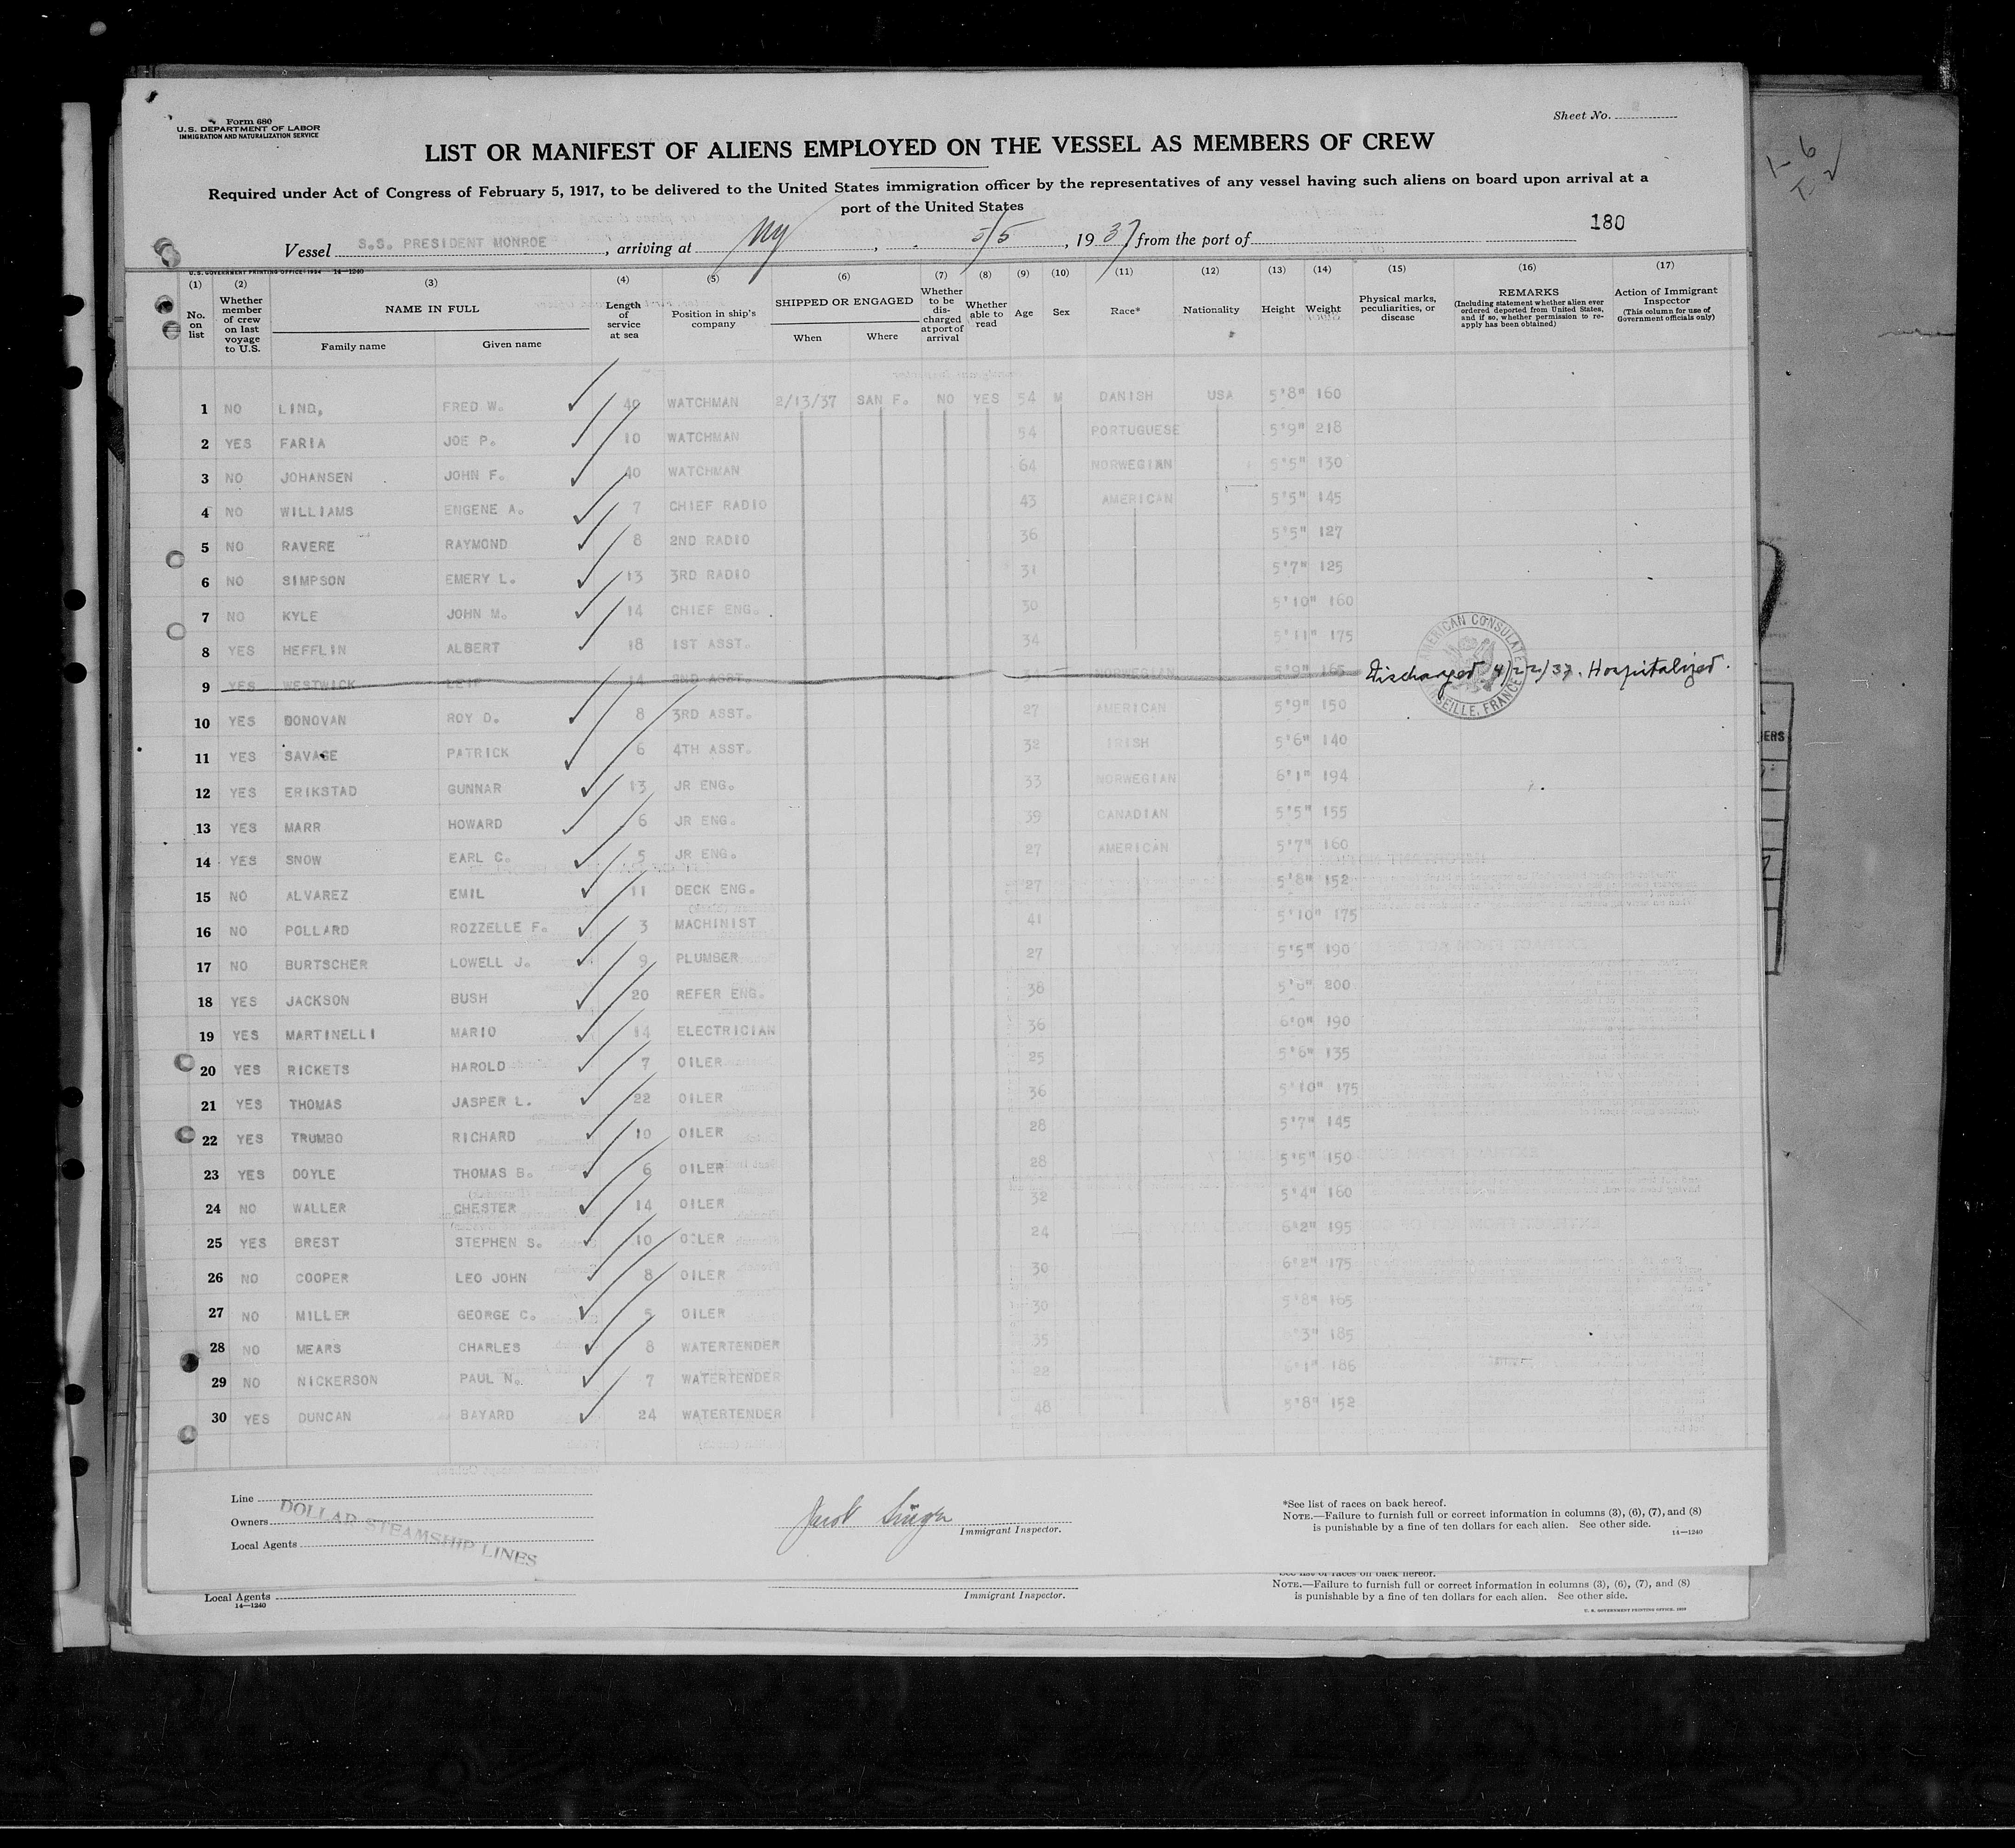 Form 680
U.S. DEPARTMENT OF LABOR
IMMIGRATION AND NATURALIZATION SERVICE
Sheet No.
LIST OR MANIFEST OF ALIENS EMPLOYED ON THE VESSEL AS MEMBERS OF CREW
Required under Act of Congress of February 5, 1917, to be delivered to the United States immigration officer by the representatives of any vessel having such aliens on board upon arrival at a
port of the United States
180
Vessel S.S. PRESIDENT MONROE, arriving at NY, 5/5, 1937 from the port of
U.S. GOVERNMENT PRINTING OFFICE: 1934 14—1240
(1) (2) (3) (4) (5) (6) (7) (8) (9) (10) (11) (12) (13) (14) (15) (16) (17)
No. on list
Whether member of crew on last voyage to U.S.
NAME IN FULL
Family name Given name
Length of service at sea
Position in ship's company
SHIPPED OR ENGAGED
When Where
Whether to be discharged at port of arrival
Whether able to read
Age Sex Race* Nationality Height Weight
Physical marks, peculiarities, or disease
REMARKS
(Including statement whether alien ever ordered deported from United States, and if so, whether permission to re-apply has been obtained)
Action of Immigrant Inspector
(This column for use of Government officials only)
1 NO LIND, FRED W. 40 WATCHMAN 2/13/37 SAN F. NO YES 54 M DANISH USA 5'8" 160
2 YES FARIA JOE P. 10 WATCHMAN 54 PORTUGUESE 5'9" 218
3 NO JOHANSEN JOHN F. 40 WATCHMAN 64 NORWEGIAN 5'5" 130
4 NO WILLIAMS ENGENE A. 7 CHIEF RADIO 43 AMERICAN 5'5" 145
5 NO RAVERE RAYMOND 8 2ND RADIO 36 5'5" 127
6 NO SIMPSON EMERY L. 13 3RD RADIO 31 5'7" 125
7 NO KYLE JOHN M. 14 CHIEF ENG. 30 5'10" 160
8 YES HEFFLIN ALBERT 18 1ST ASST. 34 5'11" 175
9 YES WESTWICK LEIF 14 2ND ASST. 34 NORWEGIAN 5'9" 165 Discharged 4/22/37. Hospitalized.
AMERICAN CONSULATE
MARSEILLE, FRANCE
10 YES DONOVAN ROY D. 8 3RD ASST. 27 AMERICAN 5'9" 150
11 YES SAVAGE PATRICK 6 4TH ASST. 32 IRISH 5'6" 140
12 YES ERIKSTAD GUNNAR 13 JR ENG. 33 NORWEGIAN 6'1" 194
13 YES MARR HOWARD 6 JR ENG. 39 CANADIAN 5'5" 155
14 YES SNOW EARL C. 5 JR ENG. 27 AMERICAN 5'7" 160
15 NO ALVAREZ EMIL 11 DECK ENG. 27 5'8" 152
16 NO POLLARD ROZZELLE F. 3 MACHINIST 41 5'10" 175
17 NO BURTSCHER LOWELL J. 9 PLUMBER 27 5'5" 190
18 YES JACKSON BUSH 20 REFER ENG. 38 200
19 YES MARTINELLI MARIO 14 ELECTRICIAN 36 6'0" 190
20 YES RICKETS HAROLD 7 OILER 25 5'6" 135
21 YES THOMAS JASPER L. 22 OILER 36 5'10" 175
22 YES TRUMBO RICHARD 10 OILER 28 5'7" 145
23 YES DOYLE THOMAS B. 6 OILER 28 5'5" 150
24 NO WALLER CHESTER 14 OILER 32 5'4" 160
25 YES BREST STEPHEN S. 10 OILER 24 6'2" 195
26 NO COOPER LEO JOHN 8 OILER 30 6'2" 175
27 NO MILLER GEORGE C. 5 OILER 30 5'8" 165
28 NO MEARS CHARLES 8 WATERTENDER 35 185
29 NO NICKERSON PAUL N. 7 WATERTENDER 22 6'1" 186
30 YES DUNCAN BAYARD 24 WATERTENDER 48 5'8" 152
Line
Owners
Local Agents
DOLLAR STEAMSHIP LINES
Jacob Singer
Immigrant Inspector.
*See list of races on back hereof.
NOTE.—Failure to furnish full or correct information in columns (3), (6), (7), and (8)
is punishable by a fine of ten dollars for each alien. See other side.
14—1240
Local Agents
14—1240
Immigrant Inspector.
*See list of races on back hereof.
NOTE.—Failure to furnish full or correct information in columns (3), (6), (7), and (8)
is punishable by a fine of ten dollars for each alien. See other side.
U. S. GOVERNMENT PRINTING OFFICE: 1929